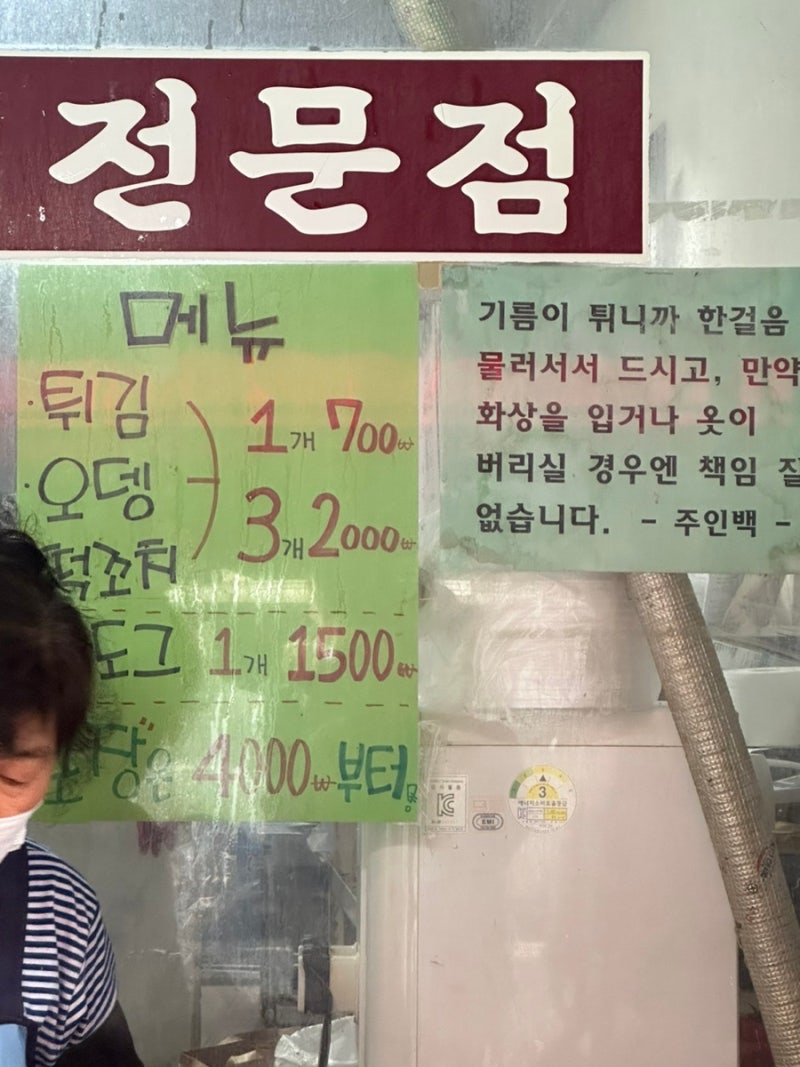 전문점
메뉴
·튀김
1개 700₩
·오뎅
3개 2000₩
떡꼬치
도그 1개 1500₩
4000₩부터
기름이 튀니까 한걸음
물러서서 드시고, 만약
화상을 입거나 옷이
버리실 경우엔 책임
없습니다. - 주인백 -
3
에너지소비효율등급
EMI